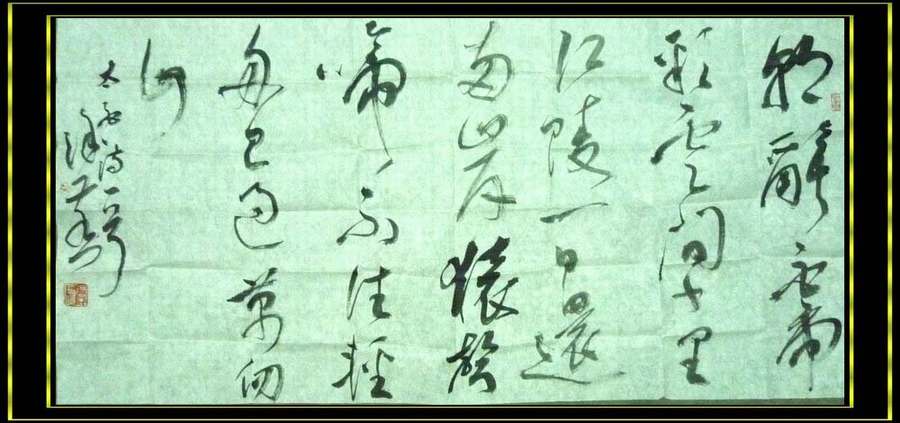 朝辭白帝
彩雲間千里
江陵一日還
兩岸猿聲
啼不住輕
舟已過萬重
山
太白诗一首